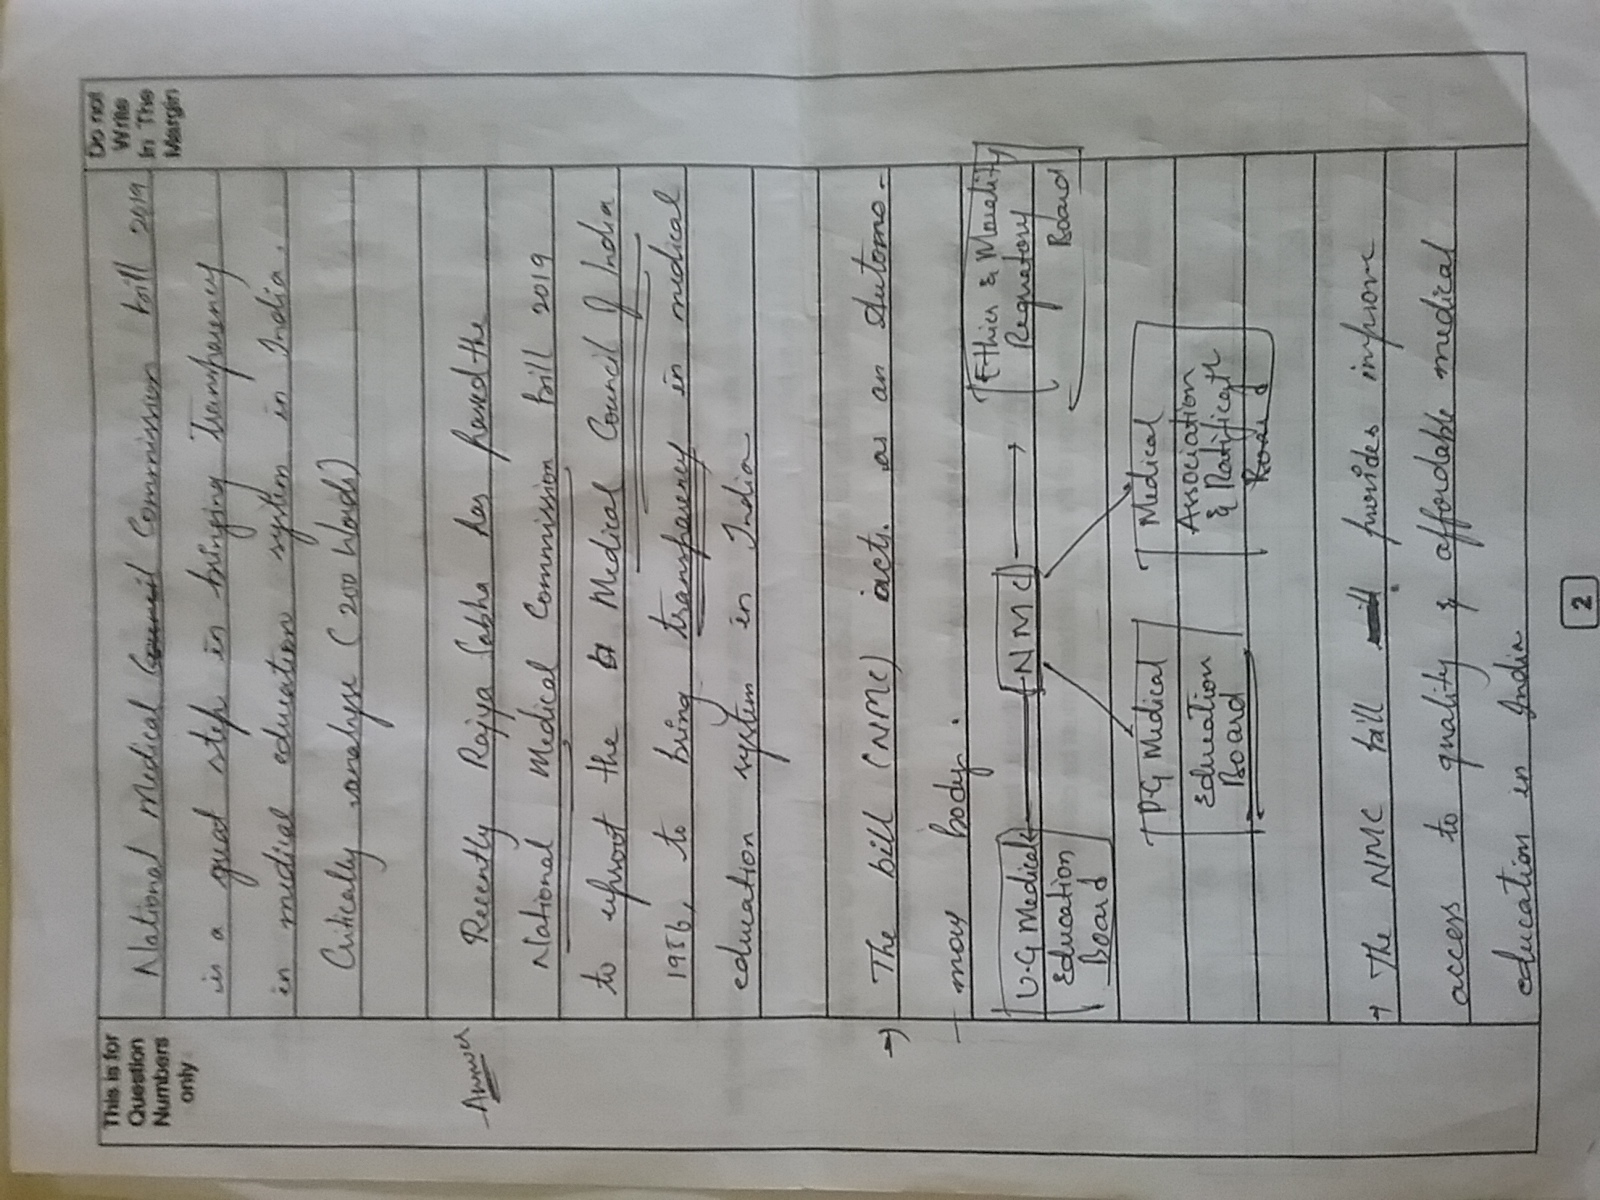 This is for
Question
Numbers
only
Do not
Write
In The
Margin
National Medical Commission bill 2019
is a great step in bringing Transparency
in medical education system in India.
Critically analyse (200 Words)
Answer
Recently Rajya Sabha has passed the
National Medical Commission bill 2019
to uproot the Medical Council of India
1956, to bring transparency in medical
education system in India
→ The bill (NMC) acts as an Autono-
-mous body.
U.G Medical
Education
Board
NMC
Ethics &
Regulatory
Board
P.G Medical
Education
Board
Medical
Association
&
Board
→ The NMC bill provides improve
access to quality & affordable medical
education in India
2